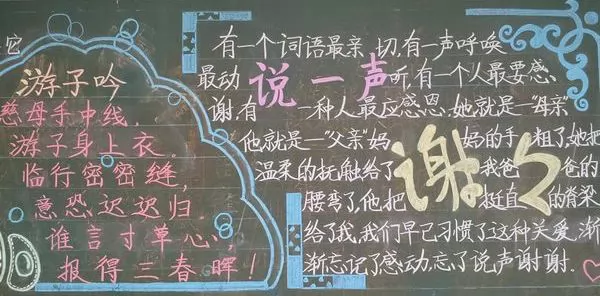 它
游子吟
慈母手中线,
游子身上衣。
临行密密缝,
意恐迟迟归。
谁言寸草心,
报得三春晖!
说一声
谢々
有一个词语最亲切,有一声呼唤
最动听,有一个人最要感
谢,有一种人最应感恩,她就是一“母亲”
他就是一“父亲”妈妈的手粗了,她把
温柔的抚触给了我爸爸的
腰弯了,他把挺直的脊梁
给了我,我们早已习惯了这种关爱,渐
渐忘记了感动,忘了说声谢谢.